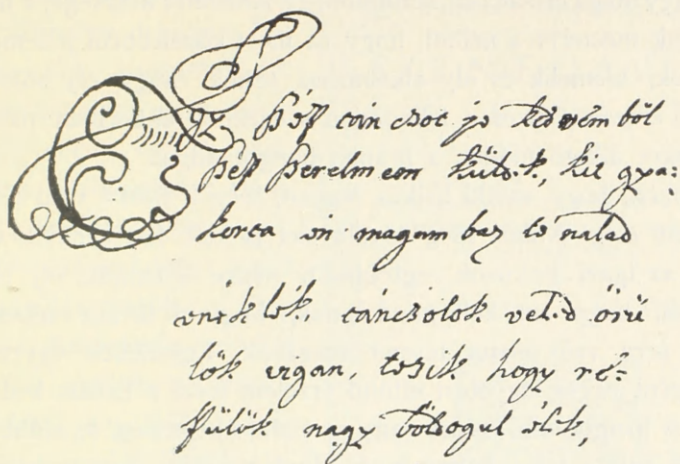 Egz szép tánczot jo kedvemből
szép szerelmem küldök, kit gya:
korta én magam baz te nalad
énéklék, tánczolok veled örü
lök vigan, teczik hogy ré-
szülök nagy boldogul élek,